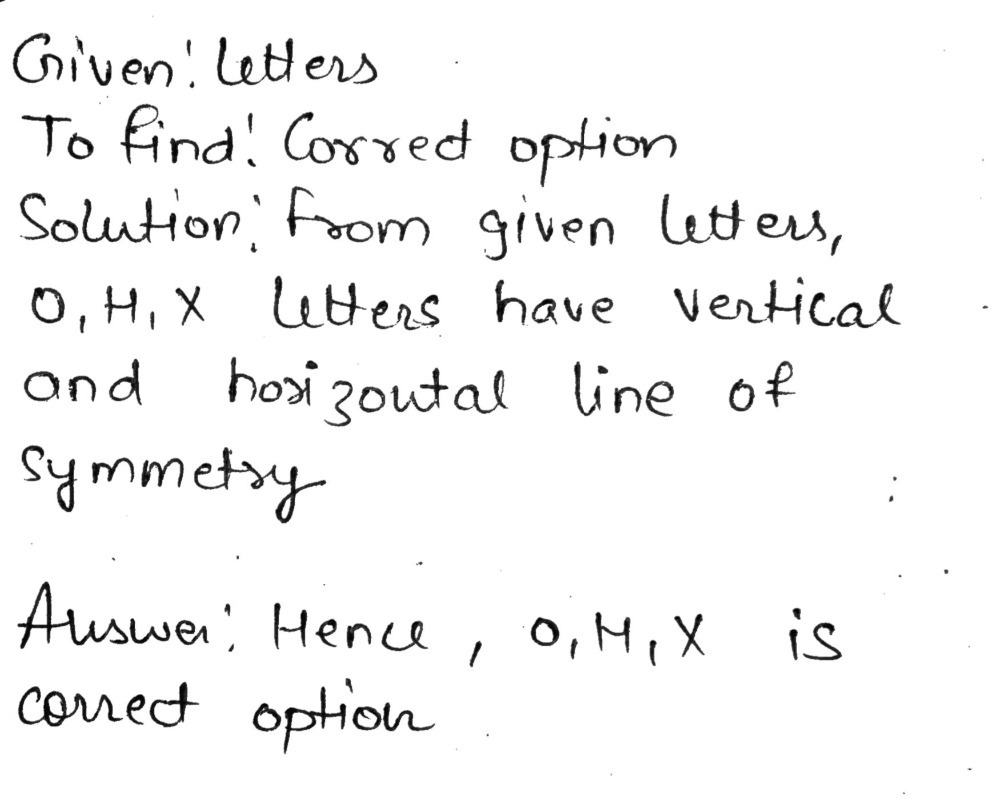 Given: Letters
To find: Correct option
Solution: from given letters,
O, H, X letters have vertical
and horizontal line of
symmetry
Answer: Hence, O, H, X is
correct option